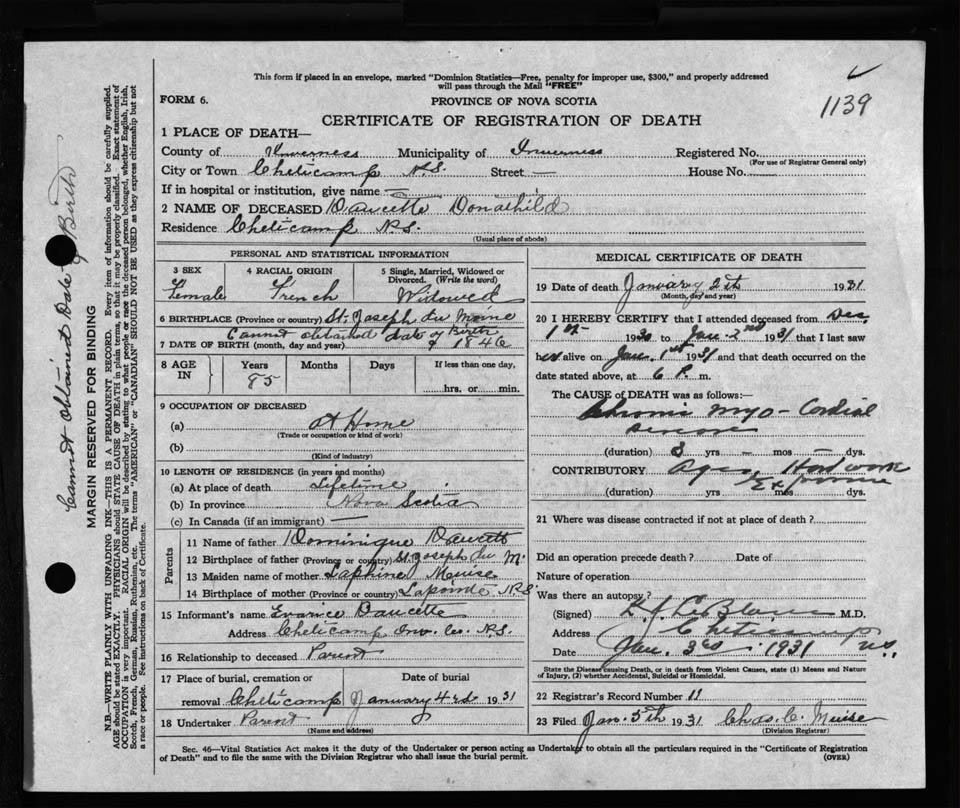 This form if placed in an envelope, marked "Dominion Statistics—Free, penalty for improper use, $300," and properly addressed
will pass through the Mail "FREE"
FORM 6.
PROVINCE OF NOVA SCOTIA
1139
CERTIFICATE OF REGISTRATION OF DEATH
1 PLACE OF DEATH—
County of Inverness Municipality of Inverness Registered No.
(For use of Registrar General only)
City or Town Cheticamp N.S. Street — House No.
If in hospital or institution, give name —
2 NAME OF DECEASED Doucette Donathild
Residence Cheticamp N.S.
(Usual place of abode)
PERSONAL AND STATISTICAL INFORMATION
3 SEX 4 RACIAL ORIGIN 5 Single, Married, Widowed or Divorced. (Write the word)
Female French Widowed
6 BIRTHPLACE (Province or country) St. Joseph du Moine
Cannot obtained date of Birth
7 DATE OF BIRTH (month, day and year) 1846
8 AGE IN Years Months Days If less than one day,
85 hrs. or min.
9 OCCUPATION OF DECEASED
(a) At Home
(Trade or occupation or kind of work)
(b)
(Kind of industry)
10 LENGTH OF RESIDENCE (in years and months)
(a) At place of death Lifetime
(b) In province Nova Scotia
(c) In Canada (if an immigrant) —
Parents
11 Name of father Dominique Doucett
12 Birthplace of father (Province or country) St. Joseph du M.
13 Maiden name of mother Muise
14 Birthplace of mother (Province or country) Lapointe N.S.
15 Informant's name Doucette
Address Cheticamp Inv. Co. N.S.
16 Relationship to deceased Parent
17 Place of burial, cremation or removal Date of burial
Cheticamp January 4rd 1931
18 Undertaker Parent
(Name and address)
MEDICAL CERTIFICATE OF DEATH
19 Date of death January 2th 1931
(Month, day and year)
20 I HEREBY CERTIFY that I attended deceased from Dec.
1st 1930 to Jan. 2nd 1931 that I last saw
her alive on Jan. 1st 1931 and that death occurred on the
date stated above, at 6 P. m.
The CAUSE OF DEATH was as follows:—
Chronic Myo-Cordial
(duration) 3 yrs. — mos. dys.
CONTRIBUTORY Age, Hard work
(duration) yrs. mos. dys.
21 Where was disease contracted if not at place of death?
Did an operation precede death? Date of
Nature of operation
Was there an autopsy?
(Signed) LeBlanc M.D.
Address Cheticamp
Date Jan. 3rd 1931 N.S.
State the Disease causing Death, or in death from Violent Causes, state (1) Means and Nature
of Injury, (2) whether Accidental, Suicidal or Homicidal.
22 Registrar's Record Number 11
23 Filed Jan. 5th 1931 Chas. C. Muise
(Division Registrar)
Sec. 46—Vital Statistics Act makes it the duty of the Undertaker or person acting as Undertaker to obtain all the particulars required in the "Certificate of Registration
of Death" and to file the same with the Division Registrar who shall issue the burial permit.
(OVER)
Cannot Obtained Date of Birth
MARGIN RESERVED FOR BINDING
N.B.—WRITE PLAINLY WITH UNFADING INK—THIS IS A PERMANENT RECORD. Every item of information should be carefully supplied.
AGE should be stated EXACTLY. PHYSICIANS should STATE CAUSE OF DEATH in plain terms, so that it may be properly classified. Exact statement of
OCCUPATION is very important. RACIAL ORIGIN will be described by stating to what people or race the deceased person belonged, whether English, Irish,
Scotch, French, German, Russian, Ruthenian, etc. The terms "AMERICAN" or "CANADIAN" SHOULD NOT BE USED as they express citizenship but not
a race or people. See instructions on back of Certificate.